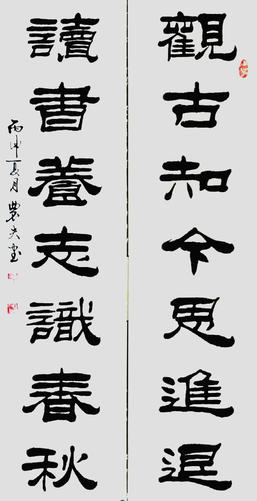 觀古知今思進退
讀書養志識春秋
丙申夏月農夫書